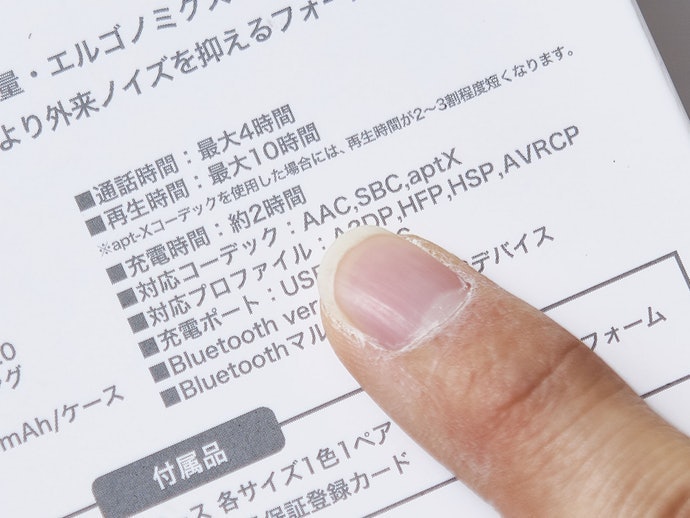 量・エルゴノミクス
より外来ノイズを抑えるフォー
■通話時間：最大4時間
■再生時間：最大10時間
※apt-Xコーデックを使用した場合には、再生時間が2～3割程度短くなります。
■充電時間：約2時間
■対応コーデック：AAC,SBC,aptX
■対応プロファイル：A2DP,HFP,HSP,AVRCP
■充電ポート：USB
■Bluetooth ver
■Bluetoothマル デバイス
フォーム
mAh/ケース
付属品
ス 各サイズ1色1ペア
保証登録カード